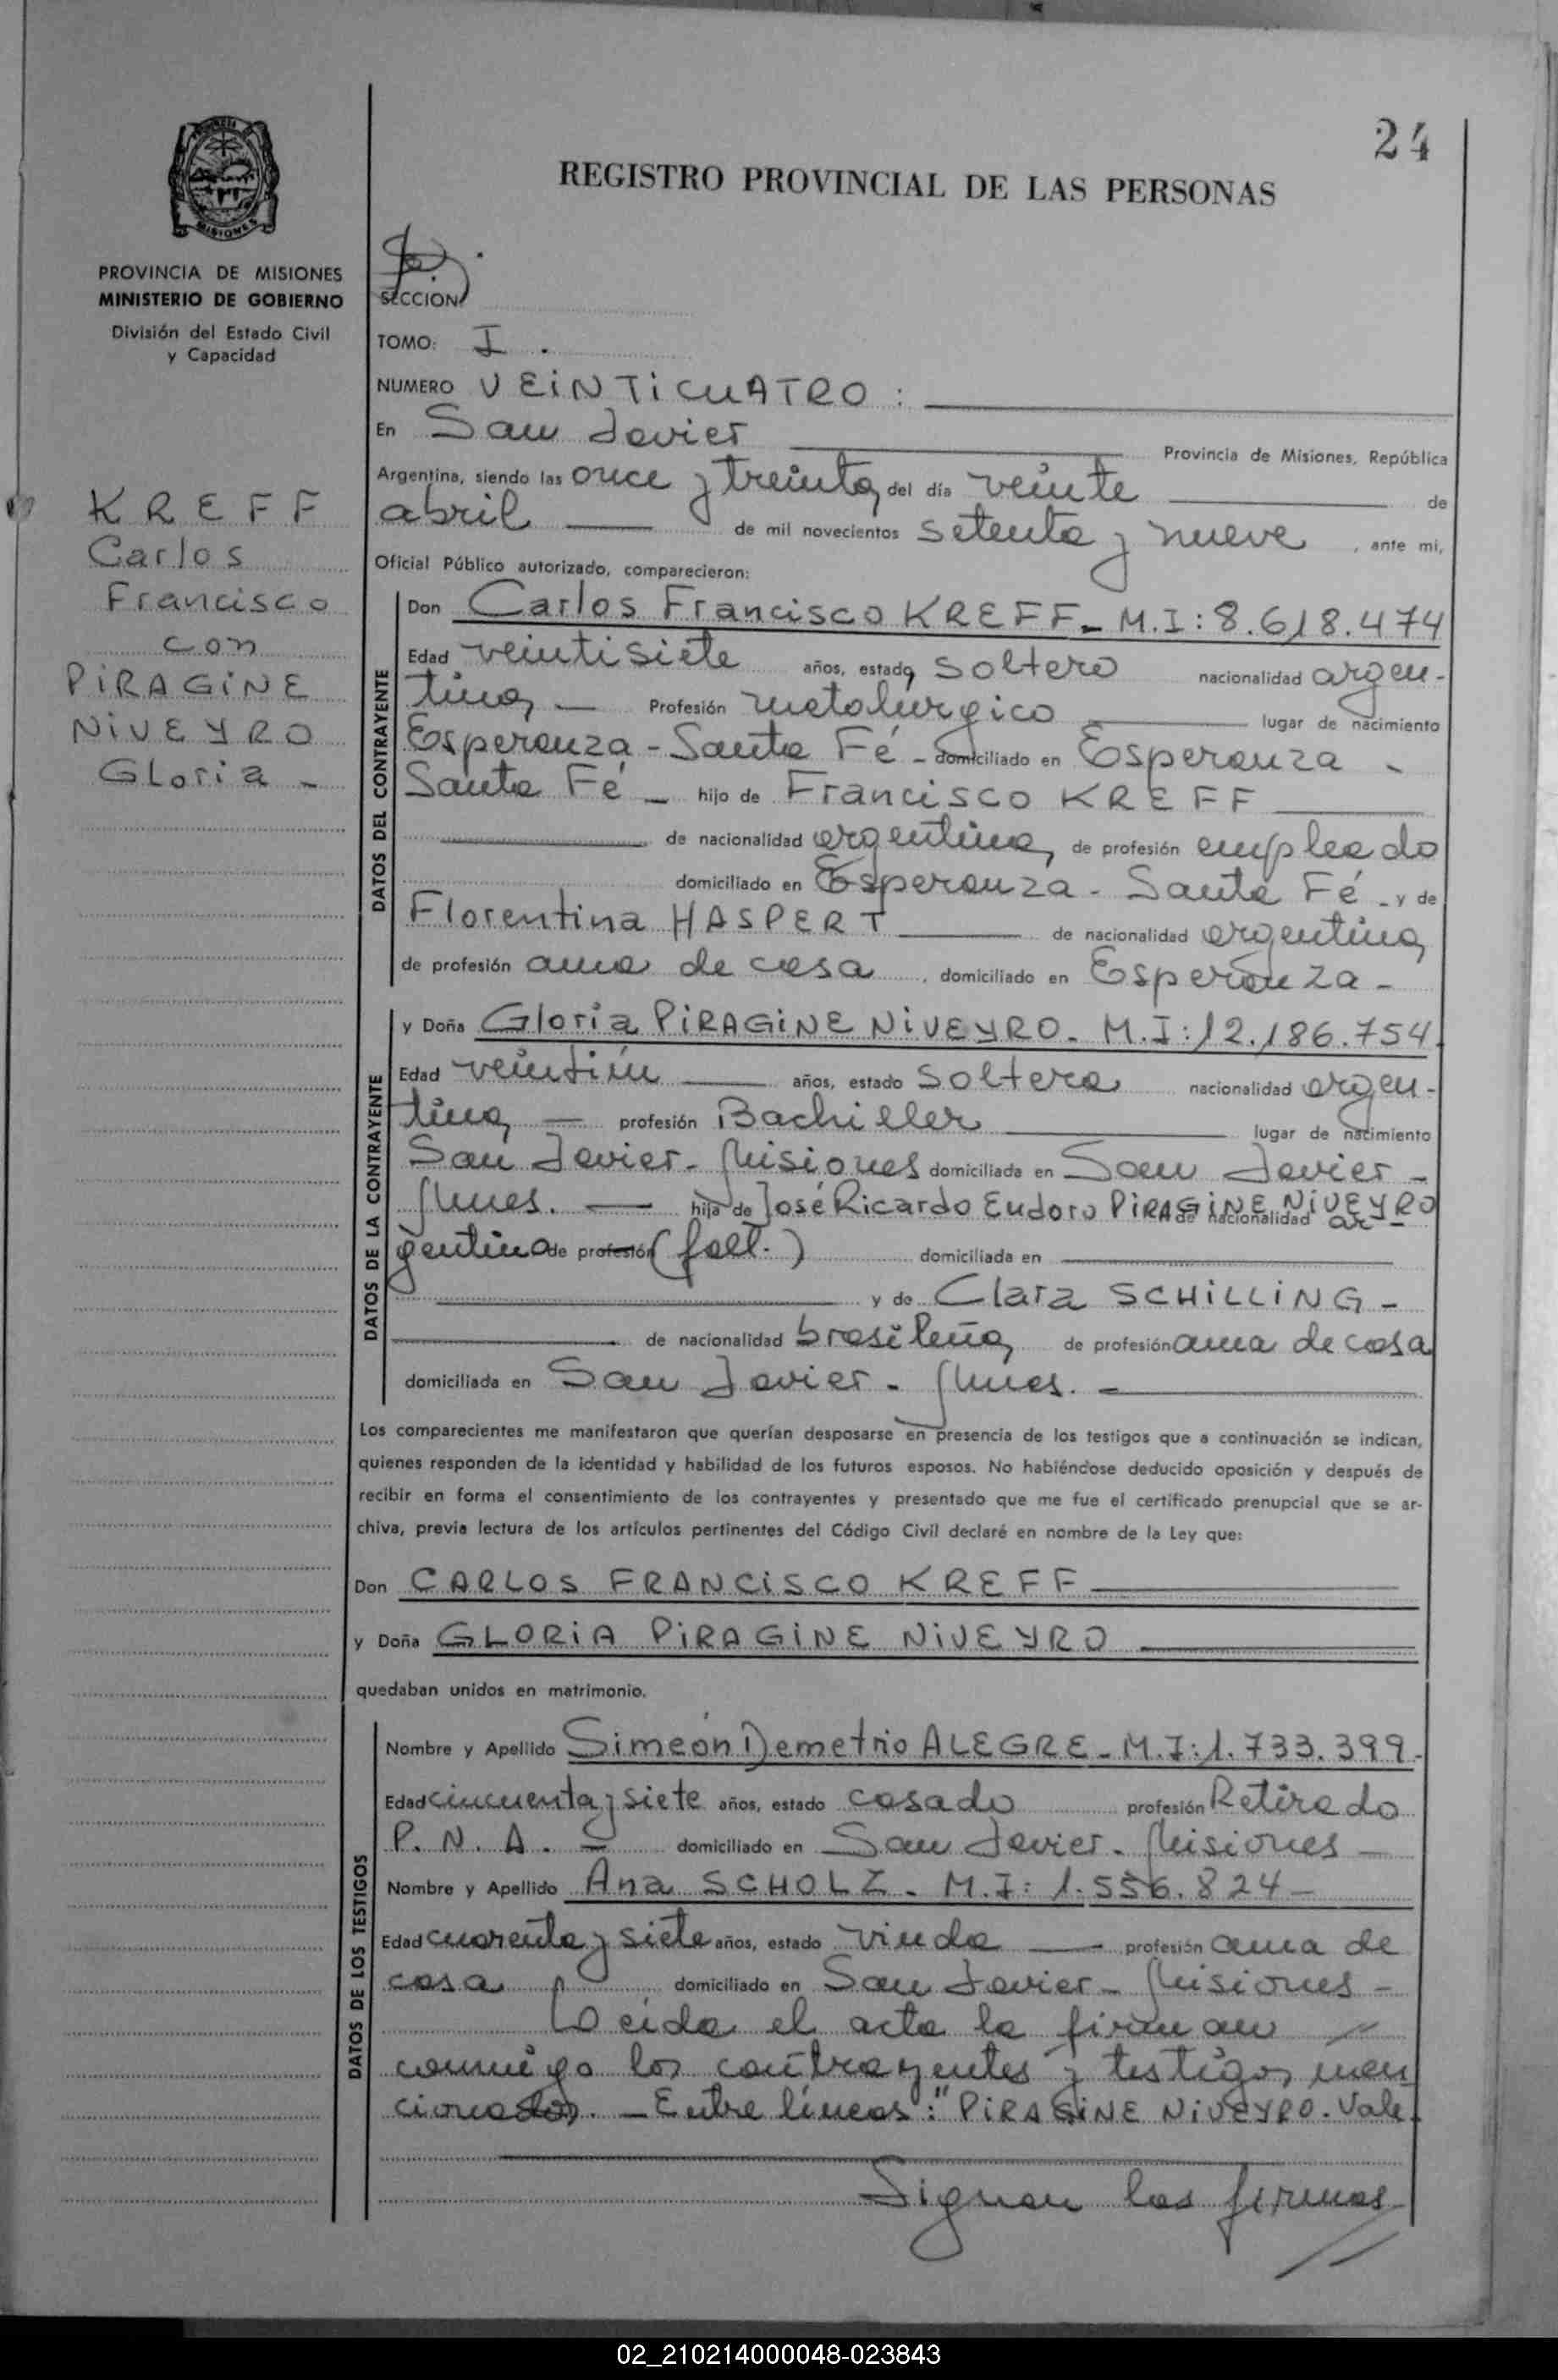 24
REGISTRO PROVINCIAL DE LAS PERSONAS
PROVINCIA DE MISIONES
MINISTERIO DE GOBIERNO
División del Estado Civil
y Capacidad
KREFF
Carlos
Francisco
con
PiRAGiNE
NiVEYRO
GLoria -
SECCION
TOMO: I.
NUMERO VEiNTiCUATRO :
En San Javier Provincia de Misiones, República
Argentina, siendo las once y treinta, del día veinte de
abril de mil novecientos setenta y nueve, ante mi,
Oficial Público autorizado, comparecieron:
DATOS DEL CONTRAYENTE
Don Carlos Francisco KREFF - M.I: 8.618.474
Edad veintisiete años, estado soltero nacionalidad argen-
tina, - Profesión metalurgico lugar de nacimiento
Esperanza - Santa Fé - domiciliado en Esperanza -
Santa Fé - hijo de Francisco KREFF
de nacionalidad argentina, de profesión empleado
domiciliado en Esperanza - Santa Fé - y de
Florentina HASPERT de nacionalidad argentina,
de profesión ama de casa, domiciliado en Esperanza -
DATOS DE LA CONTRAYENTE
y Doña Gloria PiRAGiNE NiVEYRO - M.I: 12.186.754.
Edad veintiún años, estado soltera nacionalidad argen-
tina, - profesión Bachiller lugar de nacimiento
San Javier - Misiones domiciliada en San Javier -
Mnes. - hija de José Ricardo Eudoro PiRAGiNE NiVEYRO de nacionalidad ar-
gentina de profesión (fall.) domiciliada en
y de Clara SCHiLLiNG -
de nacionalidad brasileña, de profesión ama de casa
domiciliada en San Javier - Mnes. -
Los comparecientes me manifestaron que querían desposarse en presencia de los testigos que a continuación se indican,
quienes responden de la identidad y habilidad de los futuros esposos. No habiéndose deducido oposición y después de
recibir en forma el consentimiento de los contrayentes y presentado que me fue el certificado prenupcial que se ar-
chiva, previa lectura de los artículos pertinentes del Código Civil declaré en nombre de la Ley que:
Don CARLOS FRANCiSCO KREFF
y Doña GLORiA PiRAGiNE NiVEYRO
quedaban unidos en matrimonio.
DATOS DE LOS TESTIGOS
Nombre y Apellido Simeón Demetrio ALEGRE - M.I: 1.733.399 -
Edad cincuenta y siete años, estado casado profesión Retirado
P.N.A. - domiciliado en San Javier - Misiones -
Nombre y Apellido Ana SCHOLZ - M.I: 1.556.824 -
Edad cuarenta y siete años, estado viuda profesión ama de
casa domiciliado en San Javier - Misiones -
Leída el acta la firman
conmigo los contrayentes y testigos men
cionados. - Entre líneas: "PiRAGiNE NiVEYRO. Vale.
Siguen las firmas
02_210214000048-023843